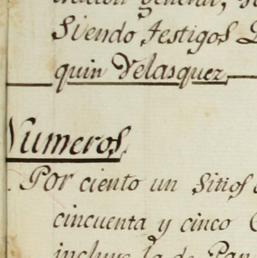 General, 
Siendo testigos
quin Velasquez
Numeros,
Por ciento un Sitios
cincuenta y cinco
incluye la de